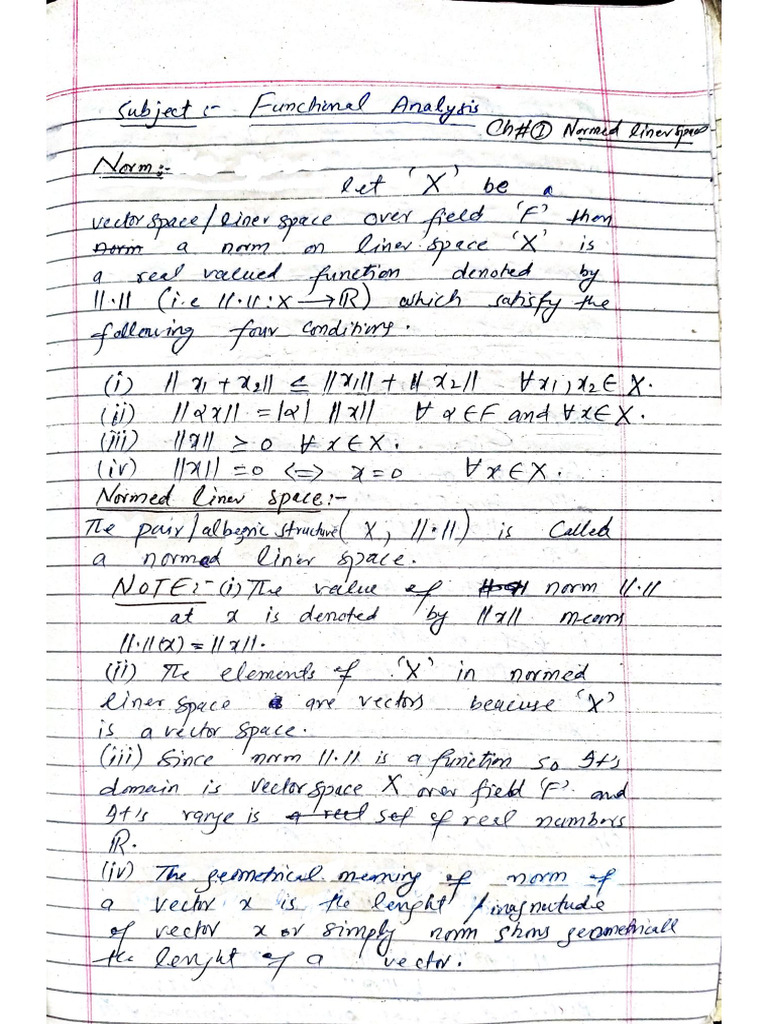 Subject :- Functional Analysis
Ch#① Normed liner space
Norm:-
let 'X' be a
vector space/liner space over field 'F' then
norm a norm on liner space 'X' is
a real valued function denoted by
||·|| (i.e ||·||: X → ℝ) which satisfy the
following four conditions.
(i) ||x₁ + x₂|| ≤ ||x₁|| + ||x₂|| ∀ x₁, x₂ ∈ X.
(ii) ||αx|| = |α| ||x|| ∀ α ∈ F and ∀ x ∈ X.
(iii) ||x|| ≥ 0 ∀ x ∈ X.
(iv) ||x|| = 0 <=> x = 0 ∀ x ∈ X.
Normed liner space:-
The pair/albegric structure (X, ||·||) is called
a normed liner space.
NOTE:- (i) The value of norm ||·||
at x is denoted by ||x|| means
||·||(x) = ||x||.
(ii) The elements of 'X' in normed
liner space are vectors beacuse 'X'
is a vector space.
(iii) Since norm ||·|| is a function so It's
domain is vector space X over field 'F' and
It's range is a real set of real numbers
ℝ.
(iv) The geometrical meaning of norm of
a vector x is the lenght / magnutude
of vector x or simply norm shows geometricall
the lenght of a vector.